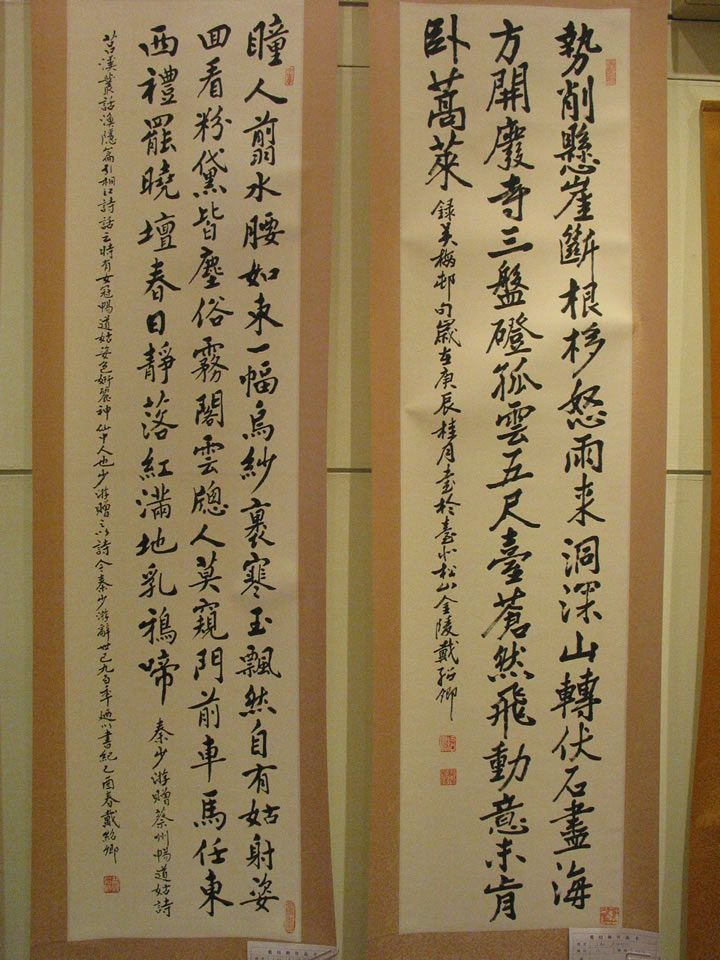 勢削懸崖斷根移怒雨来洞深山轉伏石盡海
方開廢寺三盤磴孤雲五尺臺蒼然飛動意未肯
臥蒿萊 録吴梅邨句歲在庚辰桂月書於臺北松山金陵戴紹卿
瞳人翦水腰如束一幅烏紗裹寒玉飄然自有姑射姿
囬看粉黛皆塵俗霧閣雲牕人莫窺門前車馬任東
西禮罷曉壇春日靜落紅滿地乳鴉啼 秦少游贈蔡州暢道姑詩
苕溪叢話漁隱篇引桐江詩話云時有女冠暢道姑姿色妍麗神仙中人也少游贈之以詩今秦少游辭世已九百年迺以書紀乙酉春戴紹卿